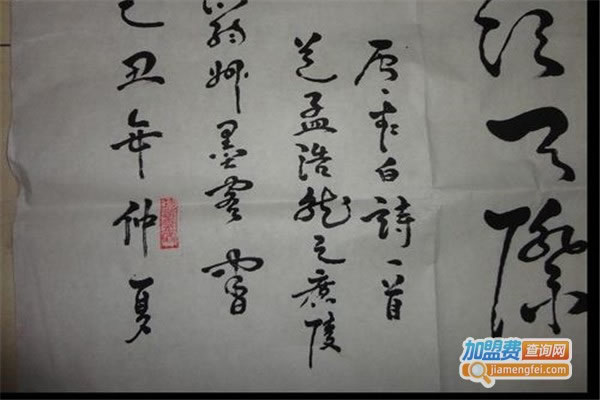 江天際
唐李白詩一首
送孟浩然之廣陵
墨客
己丑年仲夏
加盟费查询网
jiamengfei.com